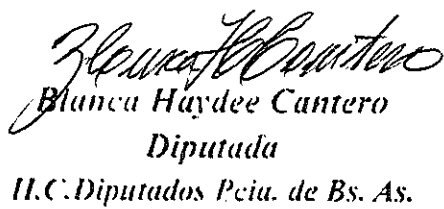 Blanca H Cantero
Blanca Haydee Cantero
Diputada
H.C.Diputados Pcia. de Bs. As.